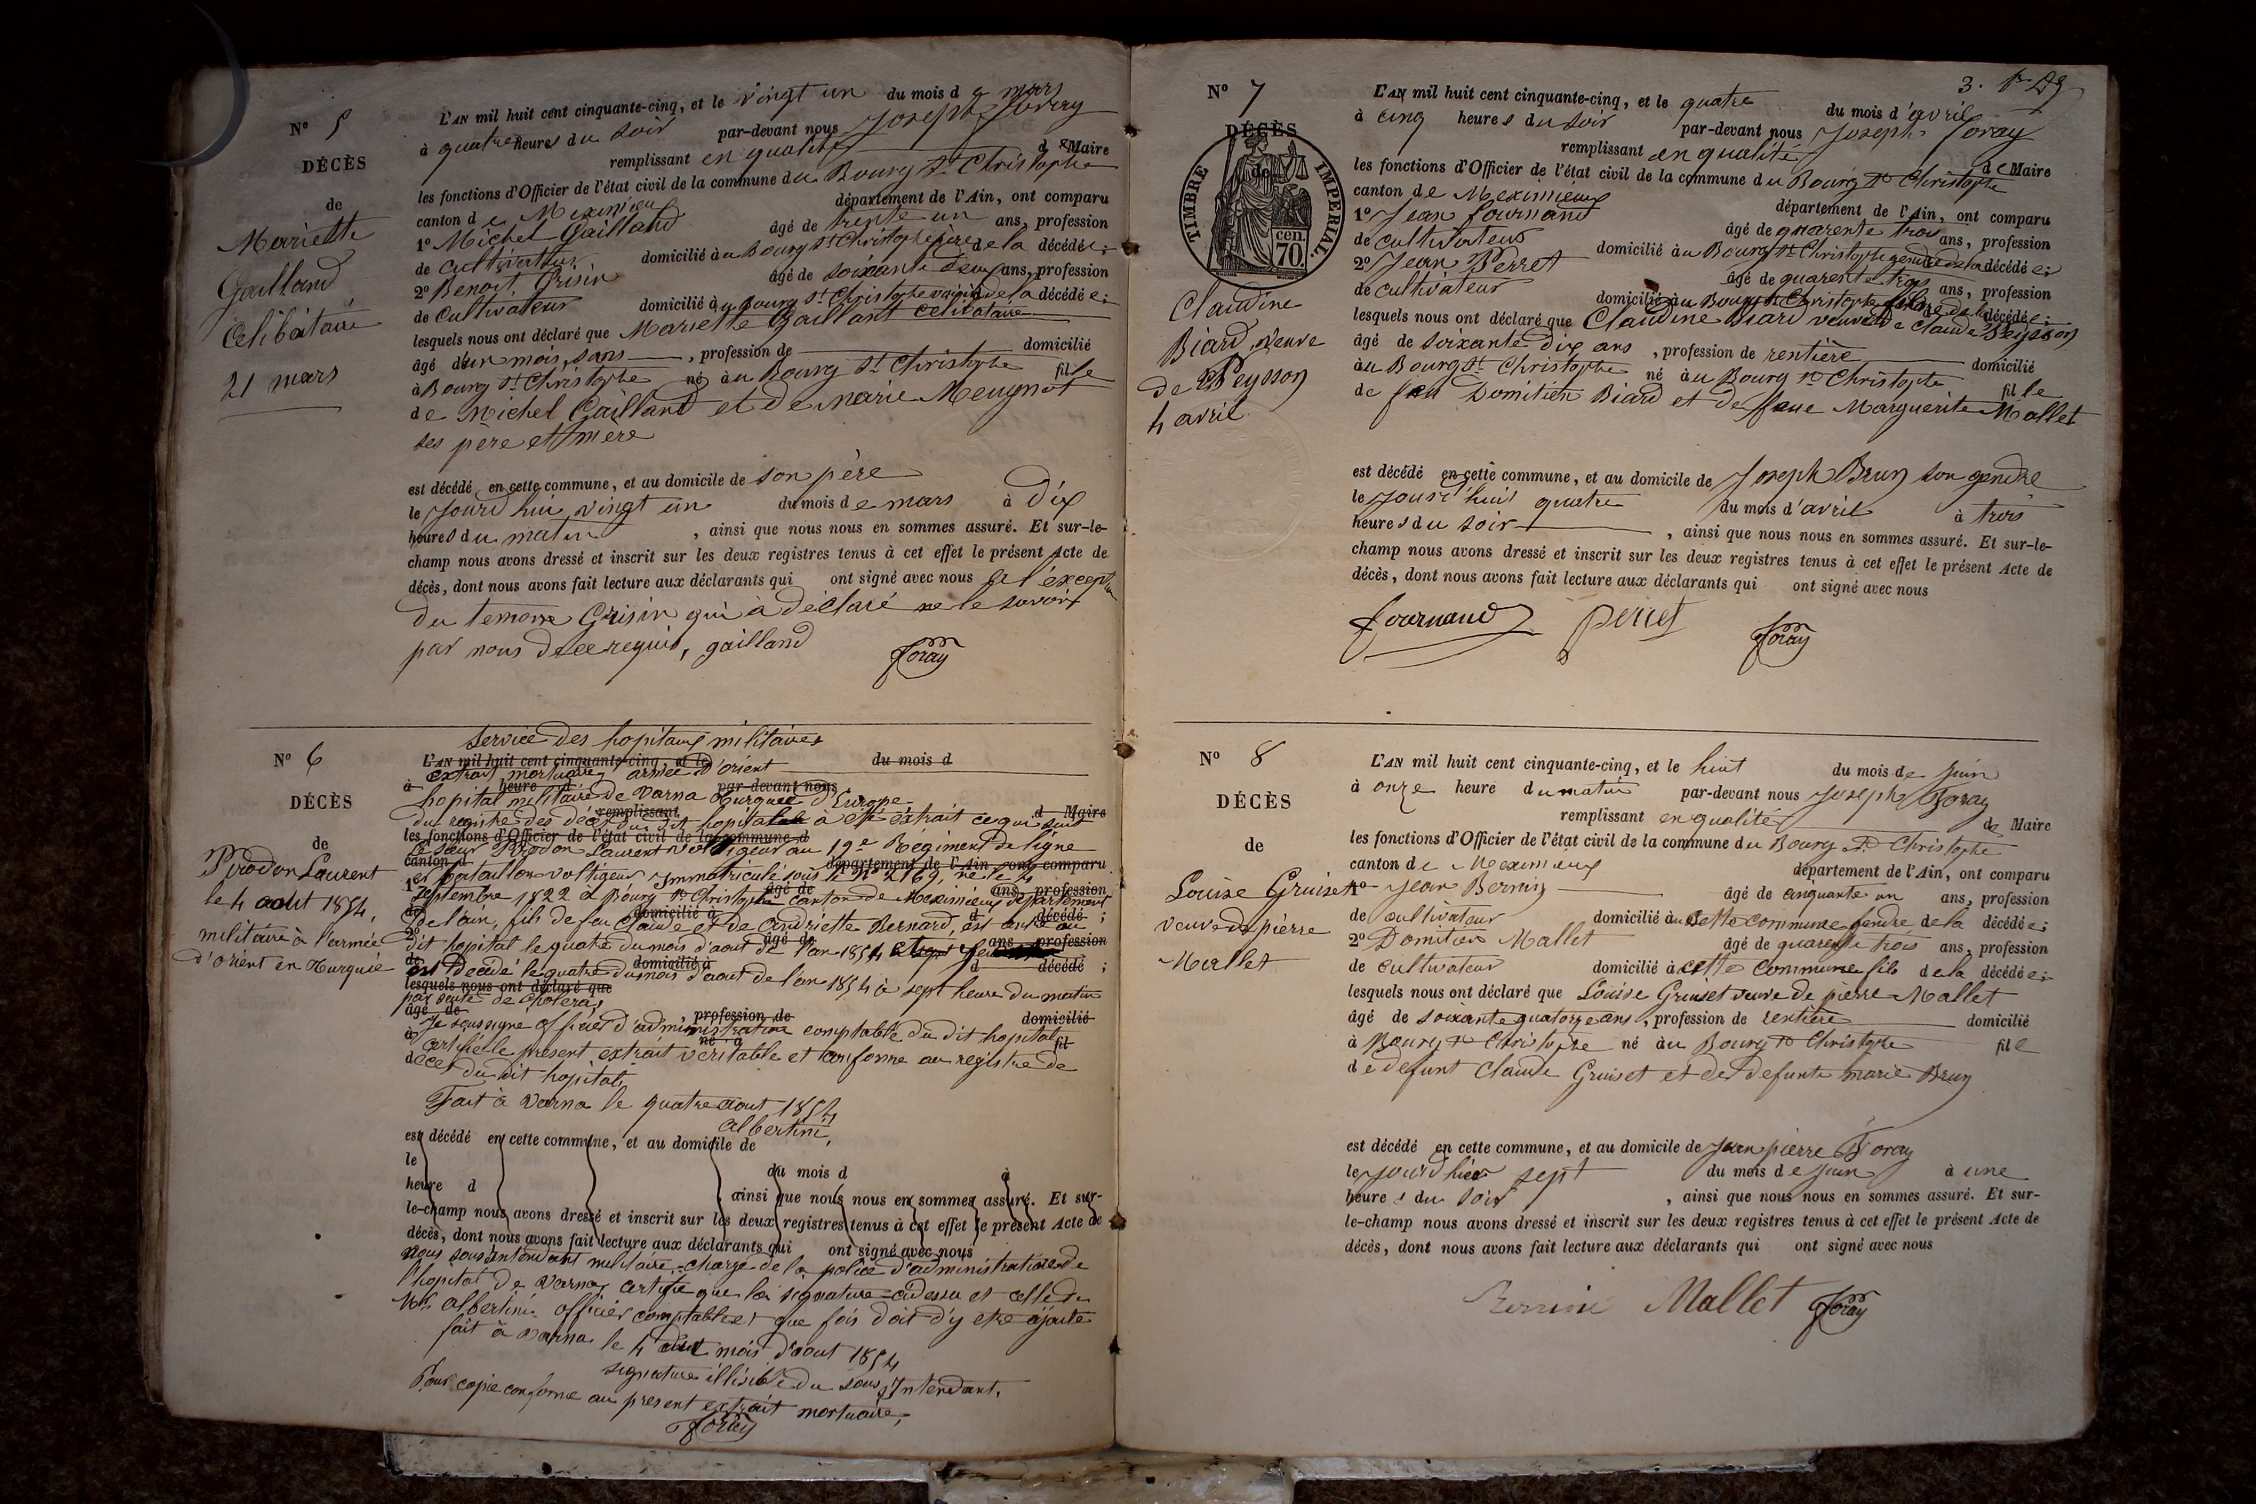 N° 5
DÉCÈS
de
Mariette
Gailland
Célibataire
21 mars
L'AN mil huit cent cinquante-cinq, et le vingt un du mois de mars
à quatre heures du soir par-devant nous Joseph Foray
remplissant en qualité de Maire
les fonctions d'Officier de l'état civil de la commune du Bourg St Christophe
canton de Meximieux département de l'Ain, ont comparu
1° Michel Gailland âgé de trente un ans, profession
de cultivateur domicilié au Bourg St Christophe père de la décédée;
2° Benoit Grisin âgé de soixante deux ans, profession
de cultivateur domicilié au Bourg St Christophe voisin de la décédée;
lesquels nous ont déclaré que Mariette Gailland célibataire
âgé d'un mois, sans , profession de domicilié
à Bourg St Christophe né au Bourg St Christophe fille
de Michel Gailland et de Marie Meugnot
ses père et mère
est décédé en cette commune, et au domicile de son père
le jourd'hui vingt un du mois de mars à dix
heures du matin , ainsi que nous nous en sommes assuré. Et sur-le-
champ nous avons dressé et inscrit sur les deux registres tenus à cet effet le présent Acte de
décès, dont nous avons fait lecture aux déclarants qui ont signé avec nous à l'exception
du temoin Grisin qui à déclaré ne le savoir
par nous de ce requis, gailland Foray
N° 6
DÉCÈS
de
Prodon Laurent
le 4 aout 1854,
militaire à l'armée
d'orient en Turquie
service des hopitaux militaires
L'AN mil huit cent cinquante-cinq, et le du mois d
extrait mortuaire armée d'orient
à heure d par-devant nous
hopital militaire de Varna Turquie d'Europe
remplissant d Maire
du registre des décès du dit hopital à été extrait ce qui suit
les fonctions d'Officier de l'état civil de la commune d
Le sieur Prodon Laurent voltigeur au 19e Régiment de ligne
canton d département de l'Ain, ont comparu
er bataillon voltigeur Immatriculé sous le n° 2169, né le 4
1° âgé de ans, profession
septembre 1822 à Bourg St Christophe canton de Meximieux département
de domicilié à d décédé ;
de l'ain, fils de feu Claude et de Andriette Bernard, est entré au
2° âgé de ans, profession
dit hopital le quatre du mois d'aout de l'an 1854 et
de domicilié à d décédé ;
est Decédé le quatre du mois d'aout de l'an 1854 à sept heure du matin
lesquels nous ont déclaré que
par suite de choléra,
âgé de profession de domicilié
Je soussigné officier d'administration comptable du dit hopital
à né à fil
certifie le présent extrait véritable et conforme au registre de
d
décès du dit hopital,
Fait à Varna le quatre aout 1854
albertini,
est décédé en cette commune, et au domicile de
le du mois d à
heure d , ainsi que nous nous en sommes assuré. Et sur-
le-champ nous avons dressé et inscrit sur les deux registres tenus à cet effet le présent Acte de
décès, dont nous avons fait lecture aux déclarants qui ont signé avec nous
nous sousintendant militaire, chargé de la police d'administration de
l'hopital de Varna, certifie que la signature cidessu est celle de
Mr albertini officier comptable et que fois doit d'y etre ajouté
fait à Varna le 4 mois d'aout 1854
signature illisible du sous Intendant.
Pour copie conforme au present extrait mortuaire,
Foray
3.
N° 7
DÉCÈS
de
TIMBRE IMPERIAL.
cen.
70
Claudine
Biard, veuve
de Peysson
4 avril
L'AN mil huit cent cinquante-cinq, et le quatre du mois d'avril
à cinq heures du soir par-devant nous Joseph Foray
remplissant en qualité de Maire
les fonctions d'Officier de l'état civil de la commune du Bourg St Christophe
canton de Meximieux département de l'Ain, ont comparu
1° Jean Fournand âgé de quarente trois ans, profession
de cultivateur domicilié au Bourg St Christophe gendre de la décédée;
2° Jean Perret âgé de quarente trois ans, profession
de cultivateur domicilié au Bourg St Christophe de la décédée;
lesquels nous ont déclaré que Claudine Biard veuve de Claude Peysson
âgé de soixante dix ans , profession de rentière domicilié
au Bourg St Christophe né au Bourg St Christophe fille
de feu Domitien Biard et de feue Marguerite Mallet
est décédé en cette commune, et au domicile de Joseph Brun son gendre
le jourd'hui quatre du mois d'avril à trois
heures du soir , ainsi que nous nous en sommes assuré. Et sur-le-
champ nous avons dressé et inscrit sur les deux registres tenus à cet effet le présent Acte de
décès, dont nous avons fait lecture aux déclarants qui ont signé avec nous
fournand perret Foray
N° 8
DÉCÈS
de
Louise Gruiset
veuve de pierre
Mallet
L'AN mil huit cent cinquante-cinq, et le huit du mois de juin
à onze heure du matin par-devant nous Joseph Foray
remplissant en qualité de Maire
les fonctions d'Officier de l'état civil de la commune du Bourg St Christophe
canton de Meximieux département de l'Ain, ont comparu
1° Jean Bernin âgé de cinquante un ans, profession
de cultivateur domicilié au cette commune gendre de la décédée;
2° Domitien Mallet âgé de quarente trois ans, profession
de cultivateur domicilié à cette commune fils de la décédée;
lesquels nous ont déclaré que Louise Gruiset veuve de pierre Mallet
âgé de soixante quatorze ans, profession de rentière domicilié
à Bourg St Christophe né au Bourg St Christophe fille
de defunt Claude Gruiset et de defunte marie Brun
est décédé en cette commune, et au domicile de Jean pierre Foray
le jourd'hier sept du mois de juin à une
heure du soir , ainsi que nous nous en sommes assuré. Et sur-
le-champ nous avons dressé et inscrit sur les deux registres tenus à cet effet le présent Acte de
décès, dont nous avons fait lecture aux déclarants qui ont signé avec nous
Mallet Foray